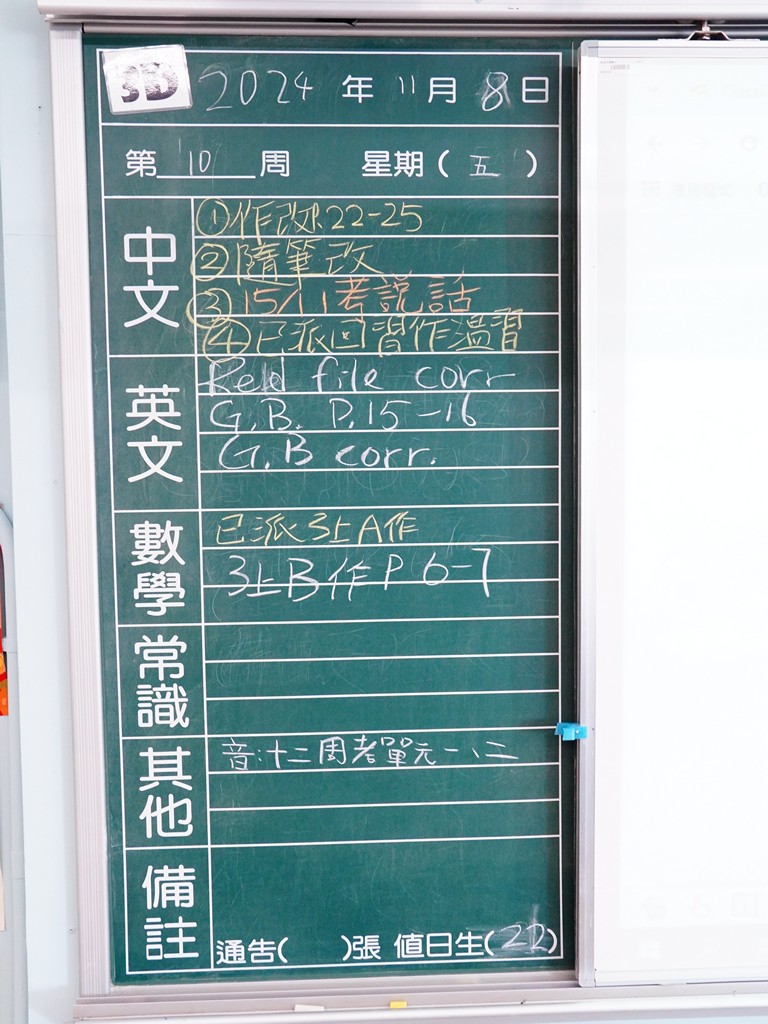 3D 2024 年 11 月 8 日
第 10 周 星期( 五 )
中文
①作改 22-25
②隨筆改
③15/11考說話
④已派回習作溫習
英文
Red file corr
G.B. P.15-16
G.B corr.
數學
已派3上A作
3上B作P 6-7
常識
其他
音:十二周考單元一、二
備註
通告( )張 值日生(22)